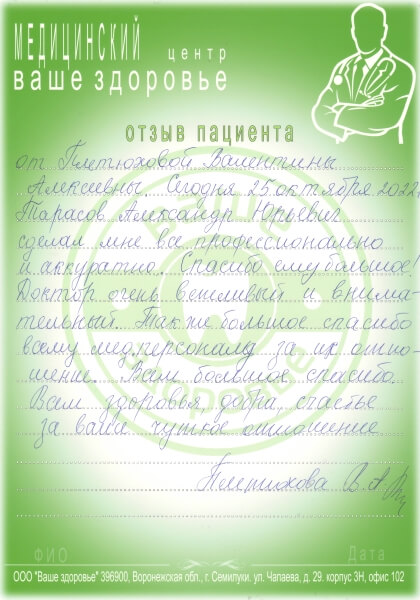 МЕДИЦИНСКИЙ центр
ваше здоровье
отзыв пациента
от Плетюховой Валентины
Алексеевны. Сегодня 25 октября 2022г.
Тарасов Александр Юрьевич
сделал мне все профессионально
и аккуратно. Спасибо ему большое!
Доктор очень вежливый и внима-
тельный. Также большое спасибо
всему медперсоналу за их отно-
шение. Всем большое спасибо.
Всем здоровья, добра, счастье
за ваше чуткое отношение
Плетюхова В.А.
ФИО Дата
ООО "Ваше здоровье" 396900, Воронежская обл., г. Семилуки. ул. Чапаева, д. 29. корпус 3Н, офис 102